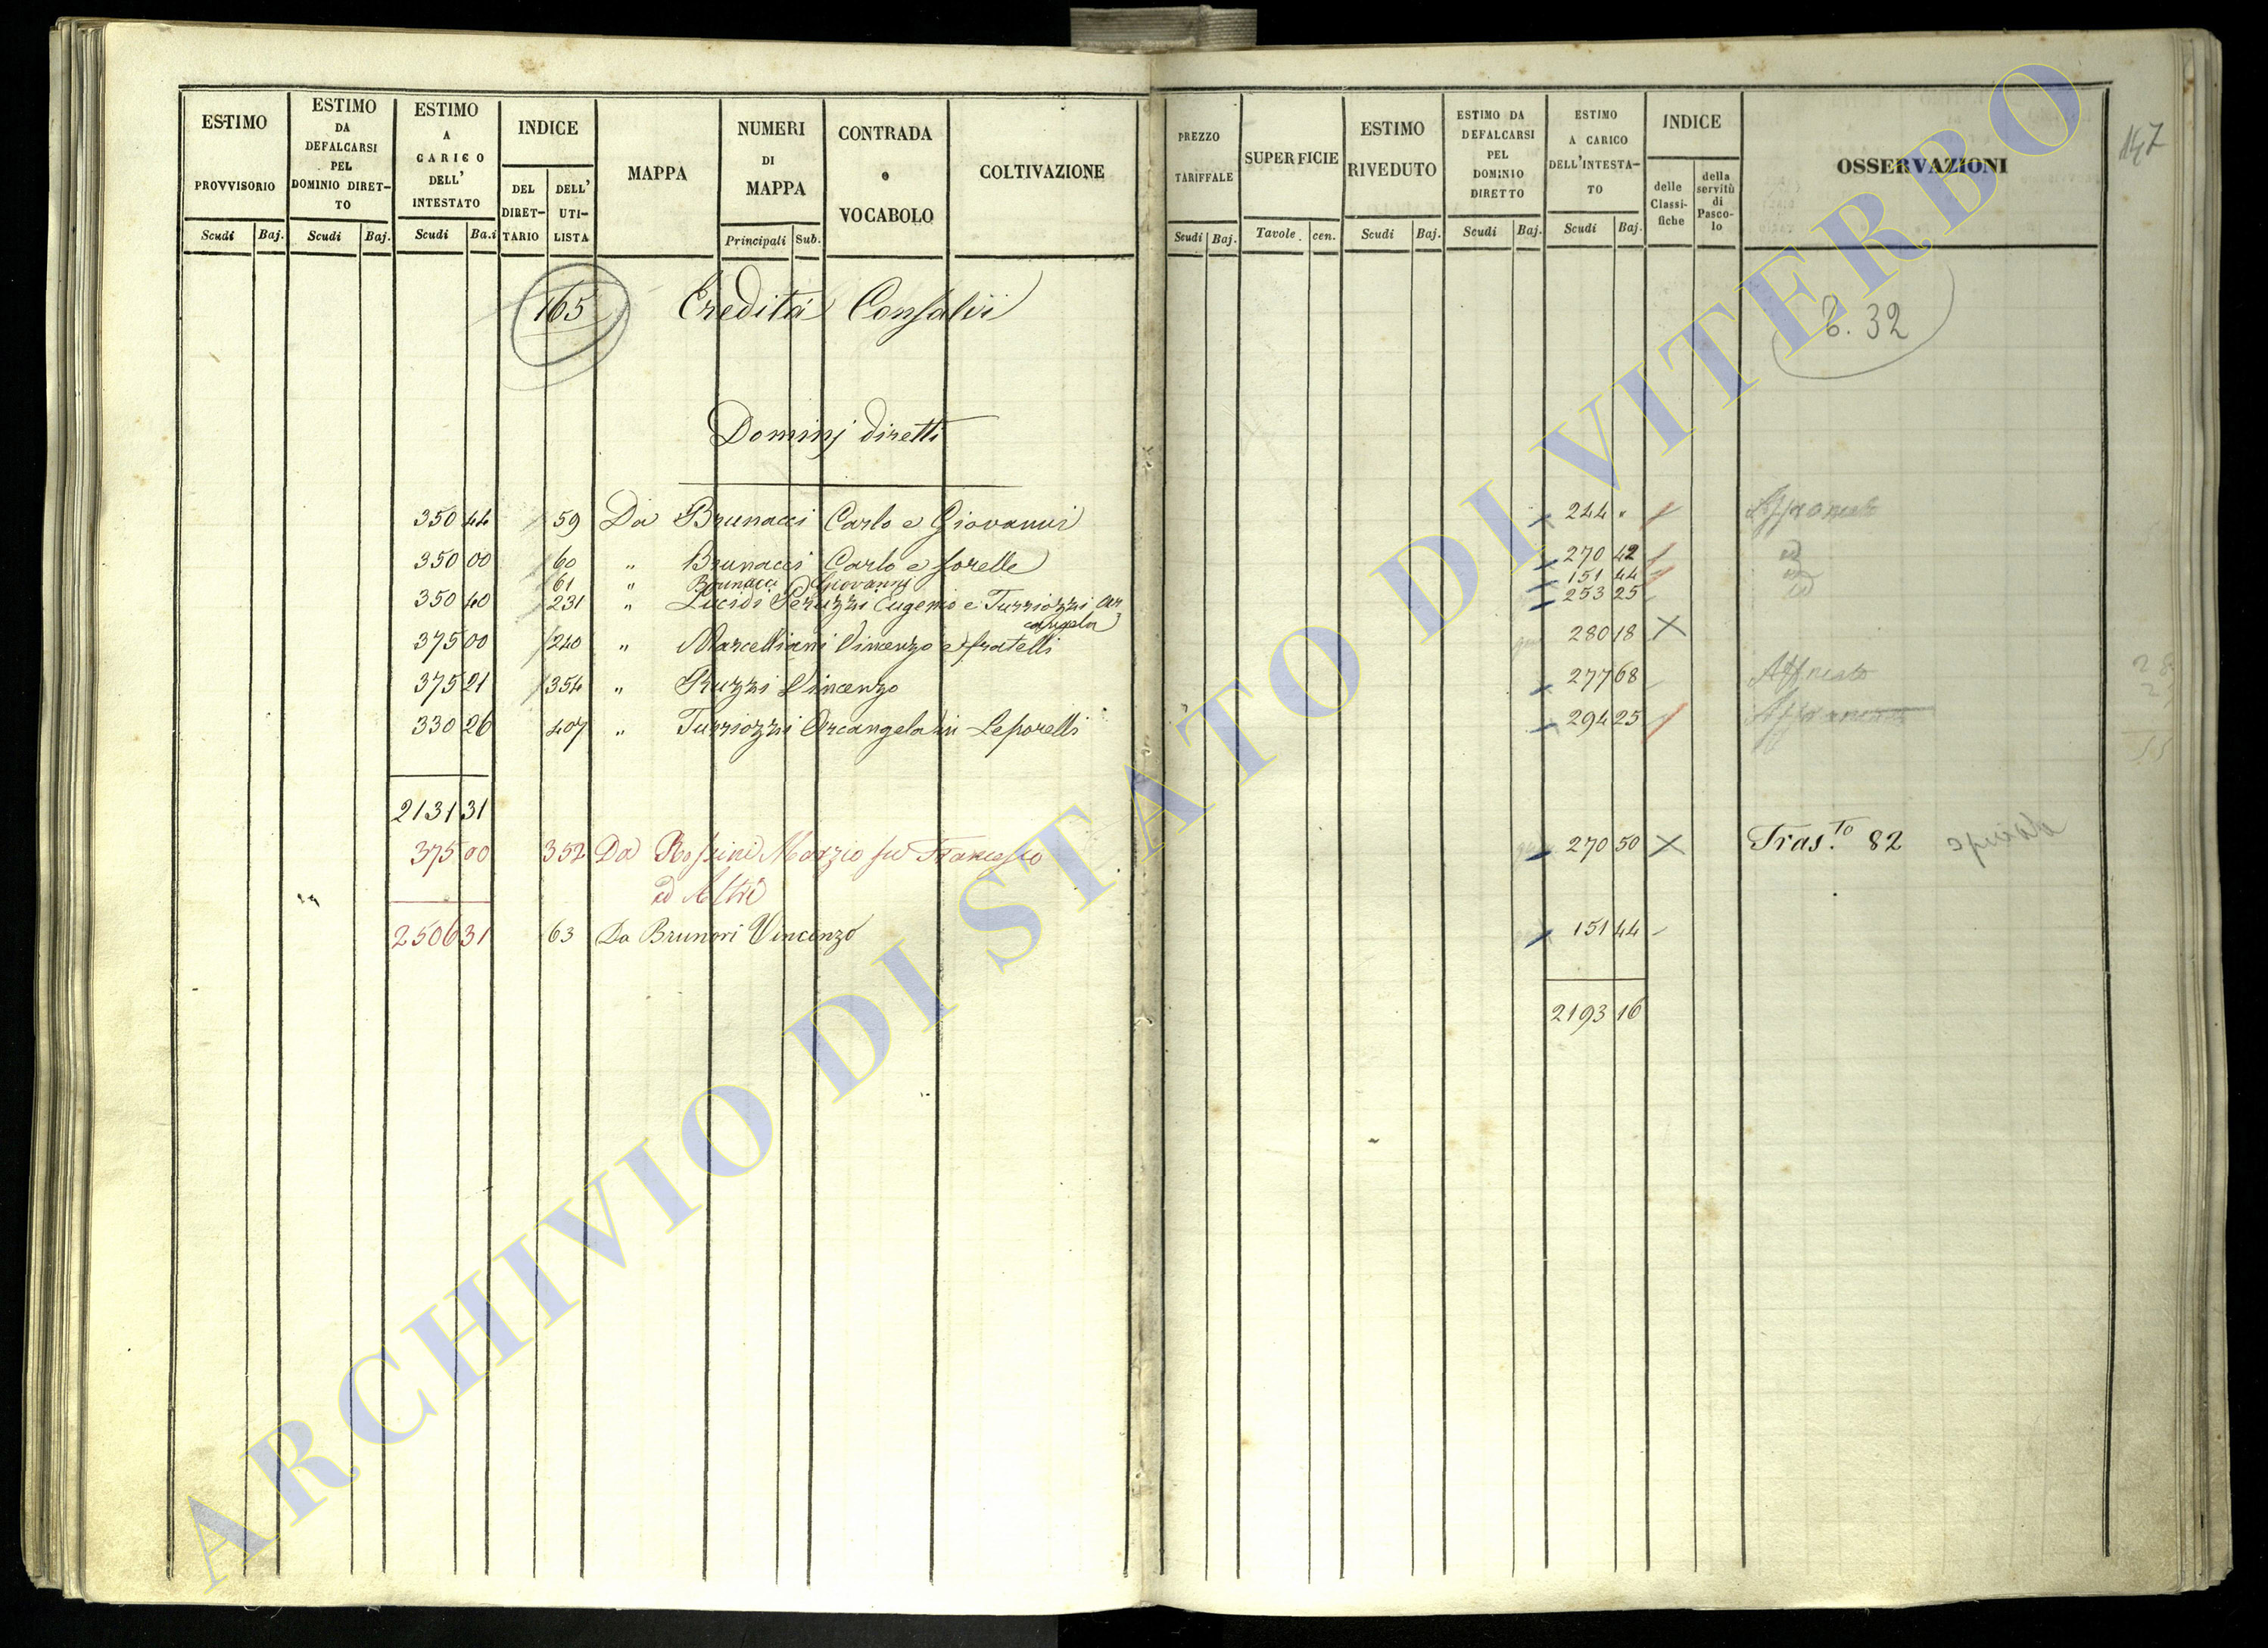 ESTIMO PROVVISORIO
Scudi Baj.
ESTIMO DA DEFALCARSI PEL DOMINIO DIRET-TO
Scudi Baj.
ESTIMO A CARICO DELL' INTESTATO
Scudi Ba.i
INDICE
DEL DIRET-TARIO
DELL' UTI-LISTA
MAPPA
NUMERI DI MAPPA
Principali Sub.
CONTRADA o VOCABOLO
COLTIVAZIONE
165 Eredità Consalvi
Dominj diretti
350 44 59 Da Brunacci Carlo e Giovanni
350 00 60 " Brunacci Carlo e sorelle
61 " Brunacci Giovanni
350 40 231 " Lucidi Peruzzi Eugenio e Turriozzi Arcangela
375 00 240 " Marcelliani Vincenzo e fratelli
375 21 354 " Ruzzi Vincenzo
330 26 407 " Turriozzi Arcangela in Leporelli
2131 31
375 00 352 Da Rossini Marzio fu Francesco
ed Altri
2506 31 63 Da Brunori Vincenzo
PREZZO TARIFFALE
Scudi Baj.
SUPERFICIE
Tavole cen.
ESTIMO RIVEDUTO
Scudi Baj.
ESTIMO DA DEFALCARSI PEL DOMINIO DIRETTO
Scudi Baj.
ESTIMO A CARICO DELL'INTESTA-TO
Scudi Baj.
INDICE
delle Classi-fiche
della servitù di Pasco-lo
OSSERVAZIONI
147
6. 32
244 "
270 42 id
151 44 id
253 25 id
280 18
277 68
294 25
270 50 Tras.to 82
151 44
2193 16
ARCHIVIO DI STATO DI VITERBO